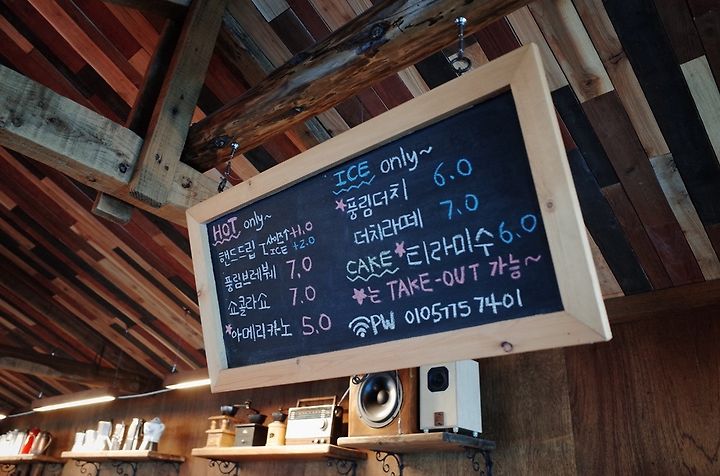 HOT only~
핸드드립 +1.0
ICE +2.0
풍림브레붸 7.0
쇼콜라쇼 7.0
*아메리카노 5.0
ICE only~
*풍림더치 6.0
더치라떼 7.0
CAKE *티라미수 6.0
*는 TAKE-OUT 가능~
PW 01057757401